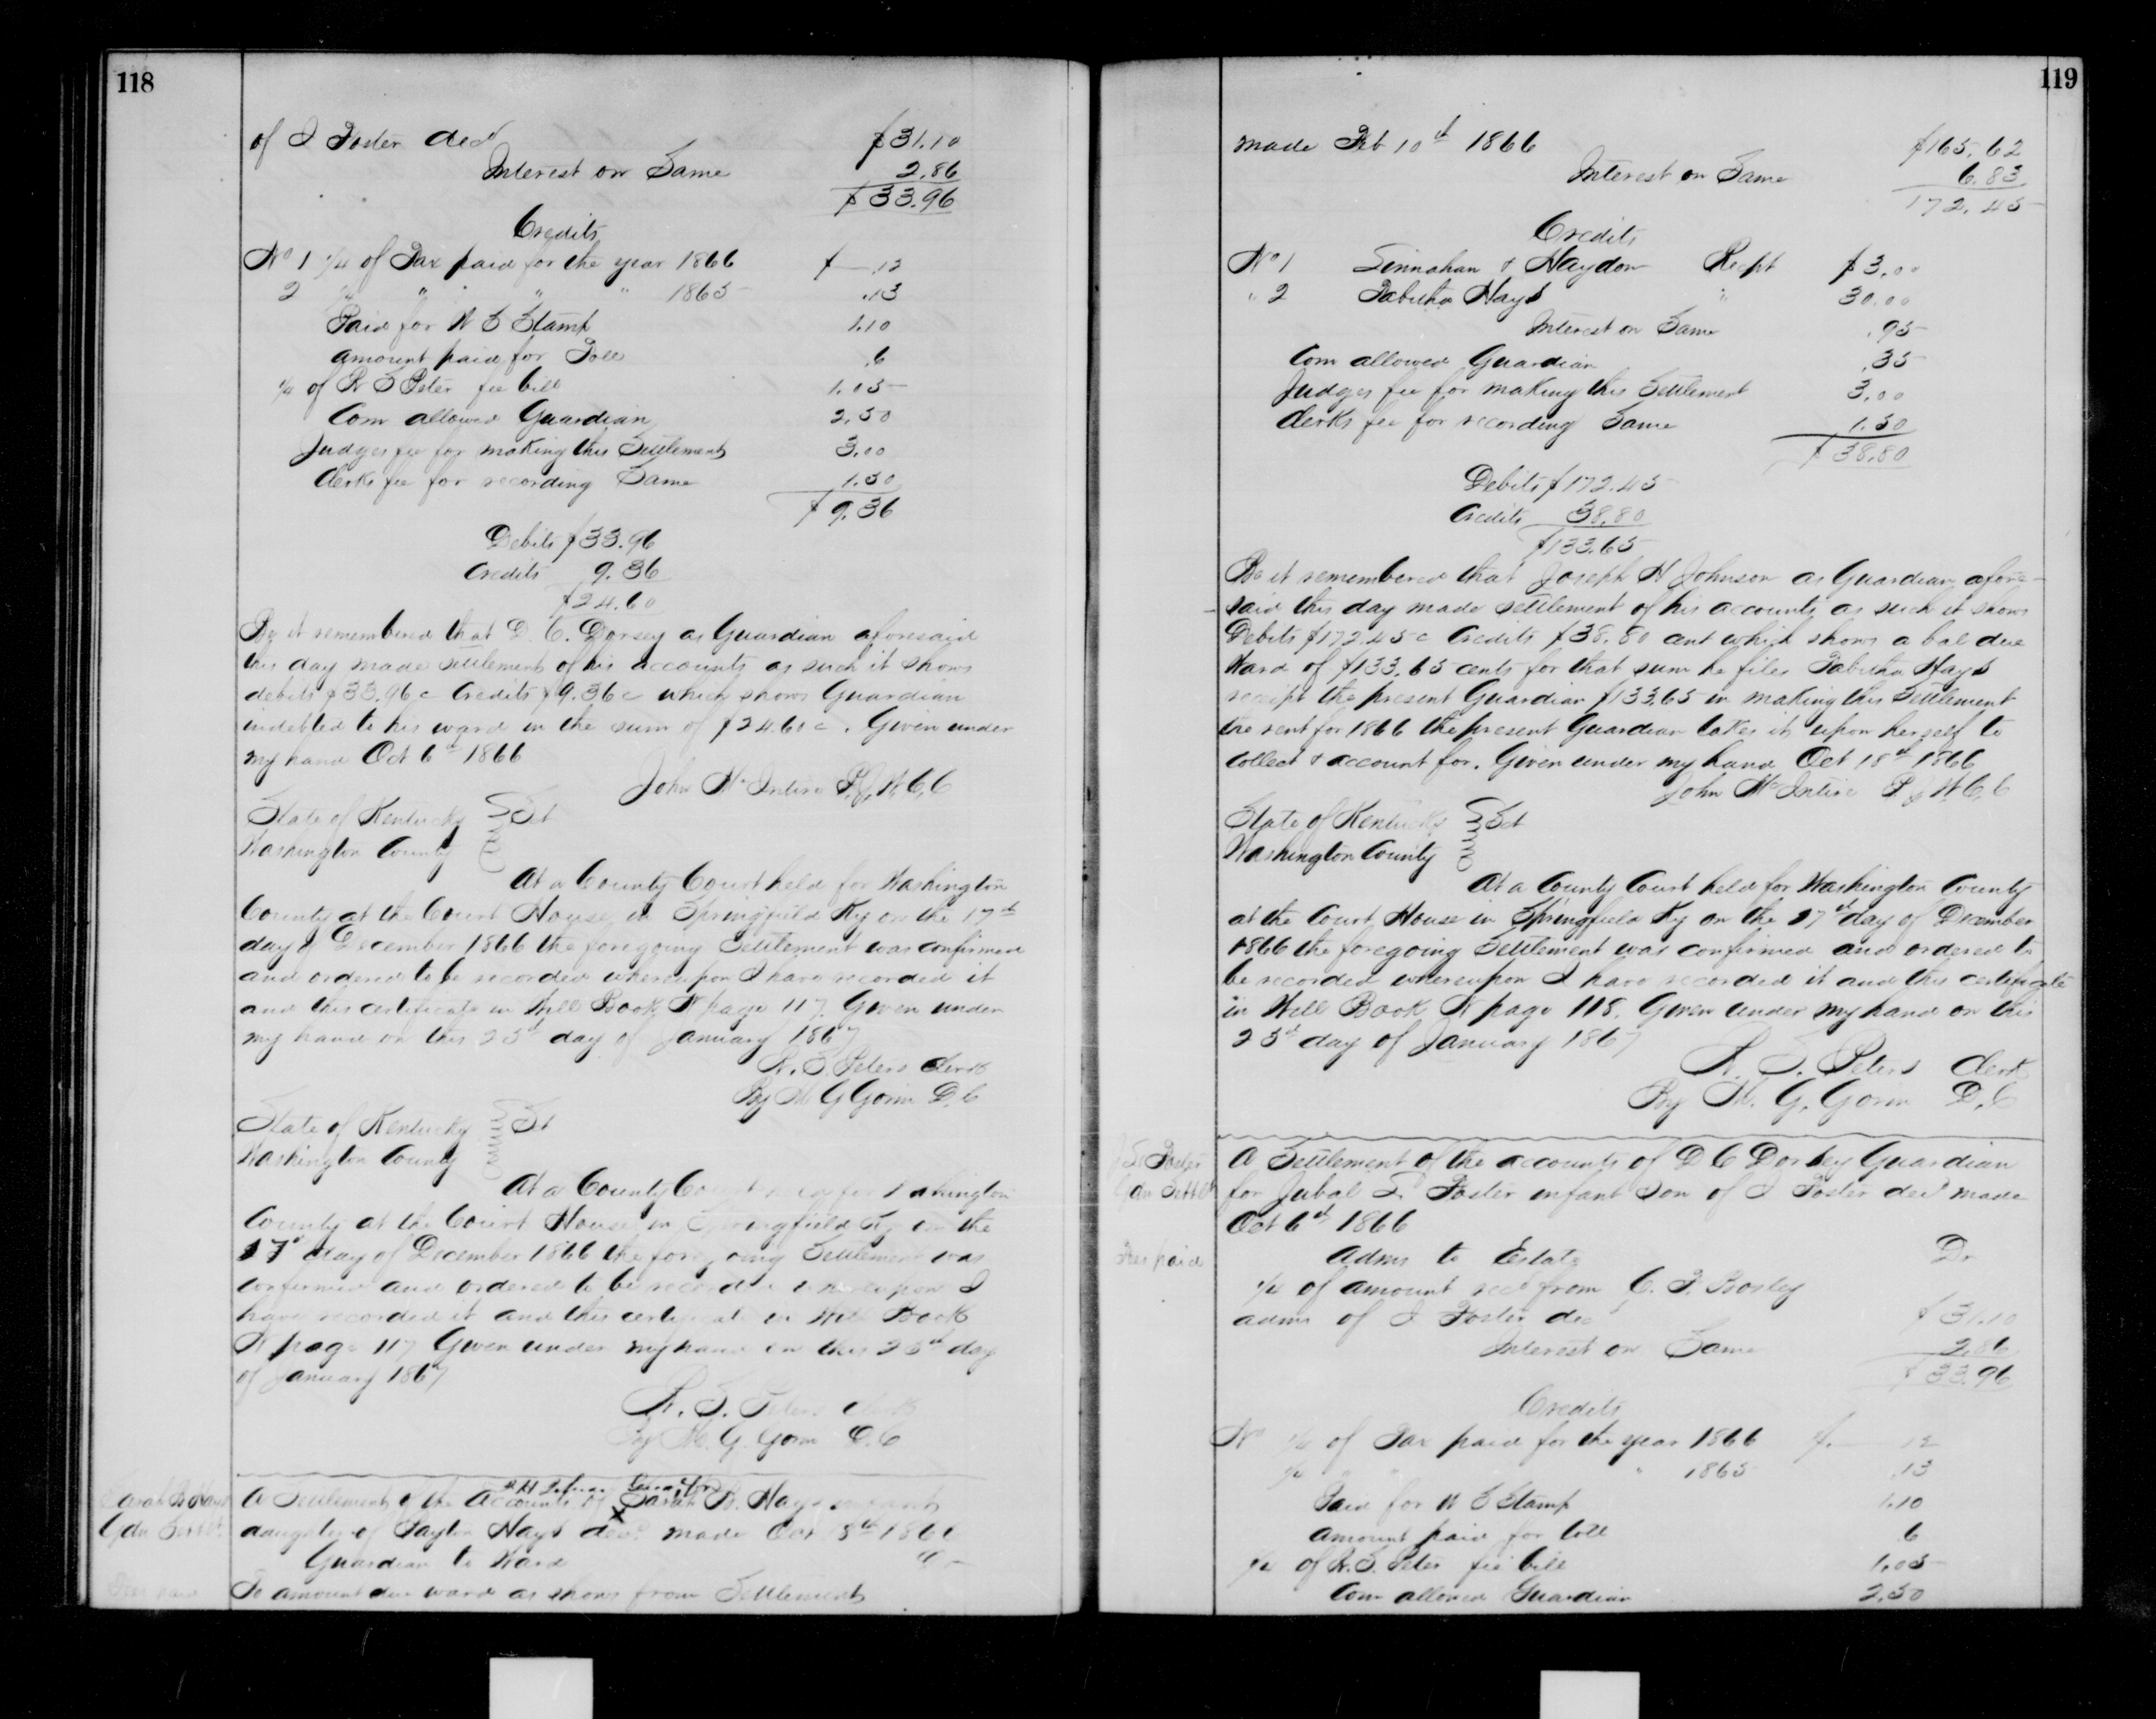 118
of I Foster decd $31.10
Interest on Same 2.86
$33.96
Credits
No 1 1/4 of Tax paid for the year 1866 $ .12
2 1/4 " " " " 1865 .13
Paid for U S Stamp 1.10
amount paid for Toll .6
1/4 of W S Peter fee bill 1.05
Com allowed Guardian 2.50
Judges fee for making this Settlement 3.00
Clerks fee for recording Same 1.50
$9.36
Debits $33.96
Credits 9.36
$24.60
Be it remembered that D. C. Dorsey as Guardian aforesaid
this day made settlement of his accounts as such it shows
debits $33.96 c Credits $9.36 c which shows Guardian
indebted to his ward in the sum of $24.60 c. Given under
my hand Oct 6th 1866
John McIntire P.J.W.C.C
State of Kentucky Sct
Washington County
At a County Court held for Washington
County at the Court House in Springfield Ky on the 17th
day of December 1866 the foregoing Settlement was confirmed
and ordered to be recorded whereupon I have recorded it
and this certificate in Will Book N page 117. Given under
my hand on this 25th day of January 1867
W. S. Peters Clerk
By M G Gorin D.C
State of Kentucky Sct
Washington County
At a County Court held for Washington
County at the Court House in Springfield Ky on the
17th day of December 1866 the foregoing Settlement was
confirmed and ordered to be recorded whereupon I
have recorded it and this certificate in Will Book
N page 117 Given under my hand on this 25th day
of January 1867
W. S. Peters Clerk
By M. G. Gorin D.C
Sarah B Hays
Gdn Settlt
J H Johnson Guardian for
A Settlement of the accounts of Sarah B. Hays infant
daughter of Payton Hays decd made Oct 18th 1866
Guardian to Ward
To amount due ward as shows from Settlement
119
made Feb 10th 1866 $165.62
Interest on Same 6.83
172.45
Credits
No 1 & Haydon Recpt $3.00
" 2 Tabitha Hays " 30.00
Interest on Same .95
Com allowed Guardian .35
Judges fee for making this Settlement 3.00
Clerks fee for recording Same 1.50
$38.80
Debits $172.45
Credits 38.80
$133.65
Be it remembered that Joseph H Johnson as Guardian afore-
said this day made settlement of his accounts as such it shows
Debits $172.45 c Credits $38.80 cent which shows a bal due
Ward of $133.65 cents for that sum he files Tabitha Hays
receipt the present Guardian $133.65 in making this Settlement
the rent for 1866 the present Guardian takes it upon herself to
collect & account for. Given under my hand Oct 18th 1866
John McIntire P J W C.C
State of Kentucky Sct
Washington County
At a County Court held for Washington County
at the Court House in Springfield Ky on the 17th day of December
1866 the foregoing Settlement was confirmed and ordered to
be recorded whereupon I have recorded it and this certificate
in Will Book N page 118. Given under my hand on this
25th day of January 1867
W. S. Peters Clerk
By M. G. Gorin D.C
J S Foster
Gdn Settlt
A Settlement of the accounts of D C Dorsey Guardian
for Jubal S. Foster infant son of I Foster decd made
Oct 6th 1866
Fees paid
Adms to Estate Dr
1/4 of amount recd from C. F. Bosley
adms of I Foster decd $31.10
Interest on Same 2.86
$33.96
Credits
No 1/4 of Tax paid for the year 1866 $ .12
1/4 " " " 1865 .13
Paid for U S Stamp 1.10
amount paid for toll 6
1/4 of W. S. Peter fee bill 1.05
Com allowed Guardian 2.50